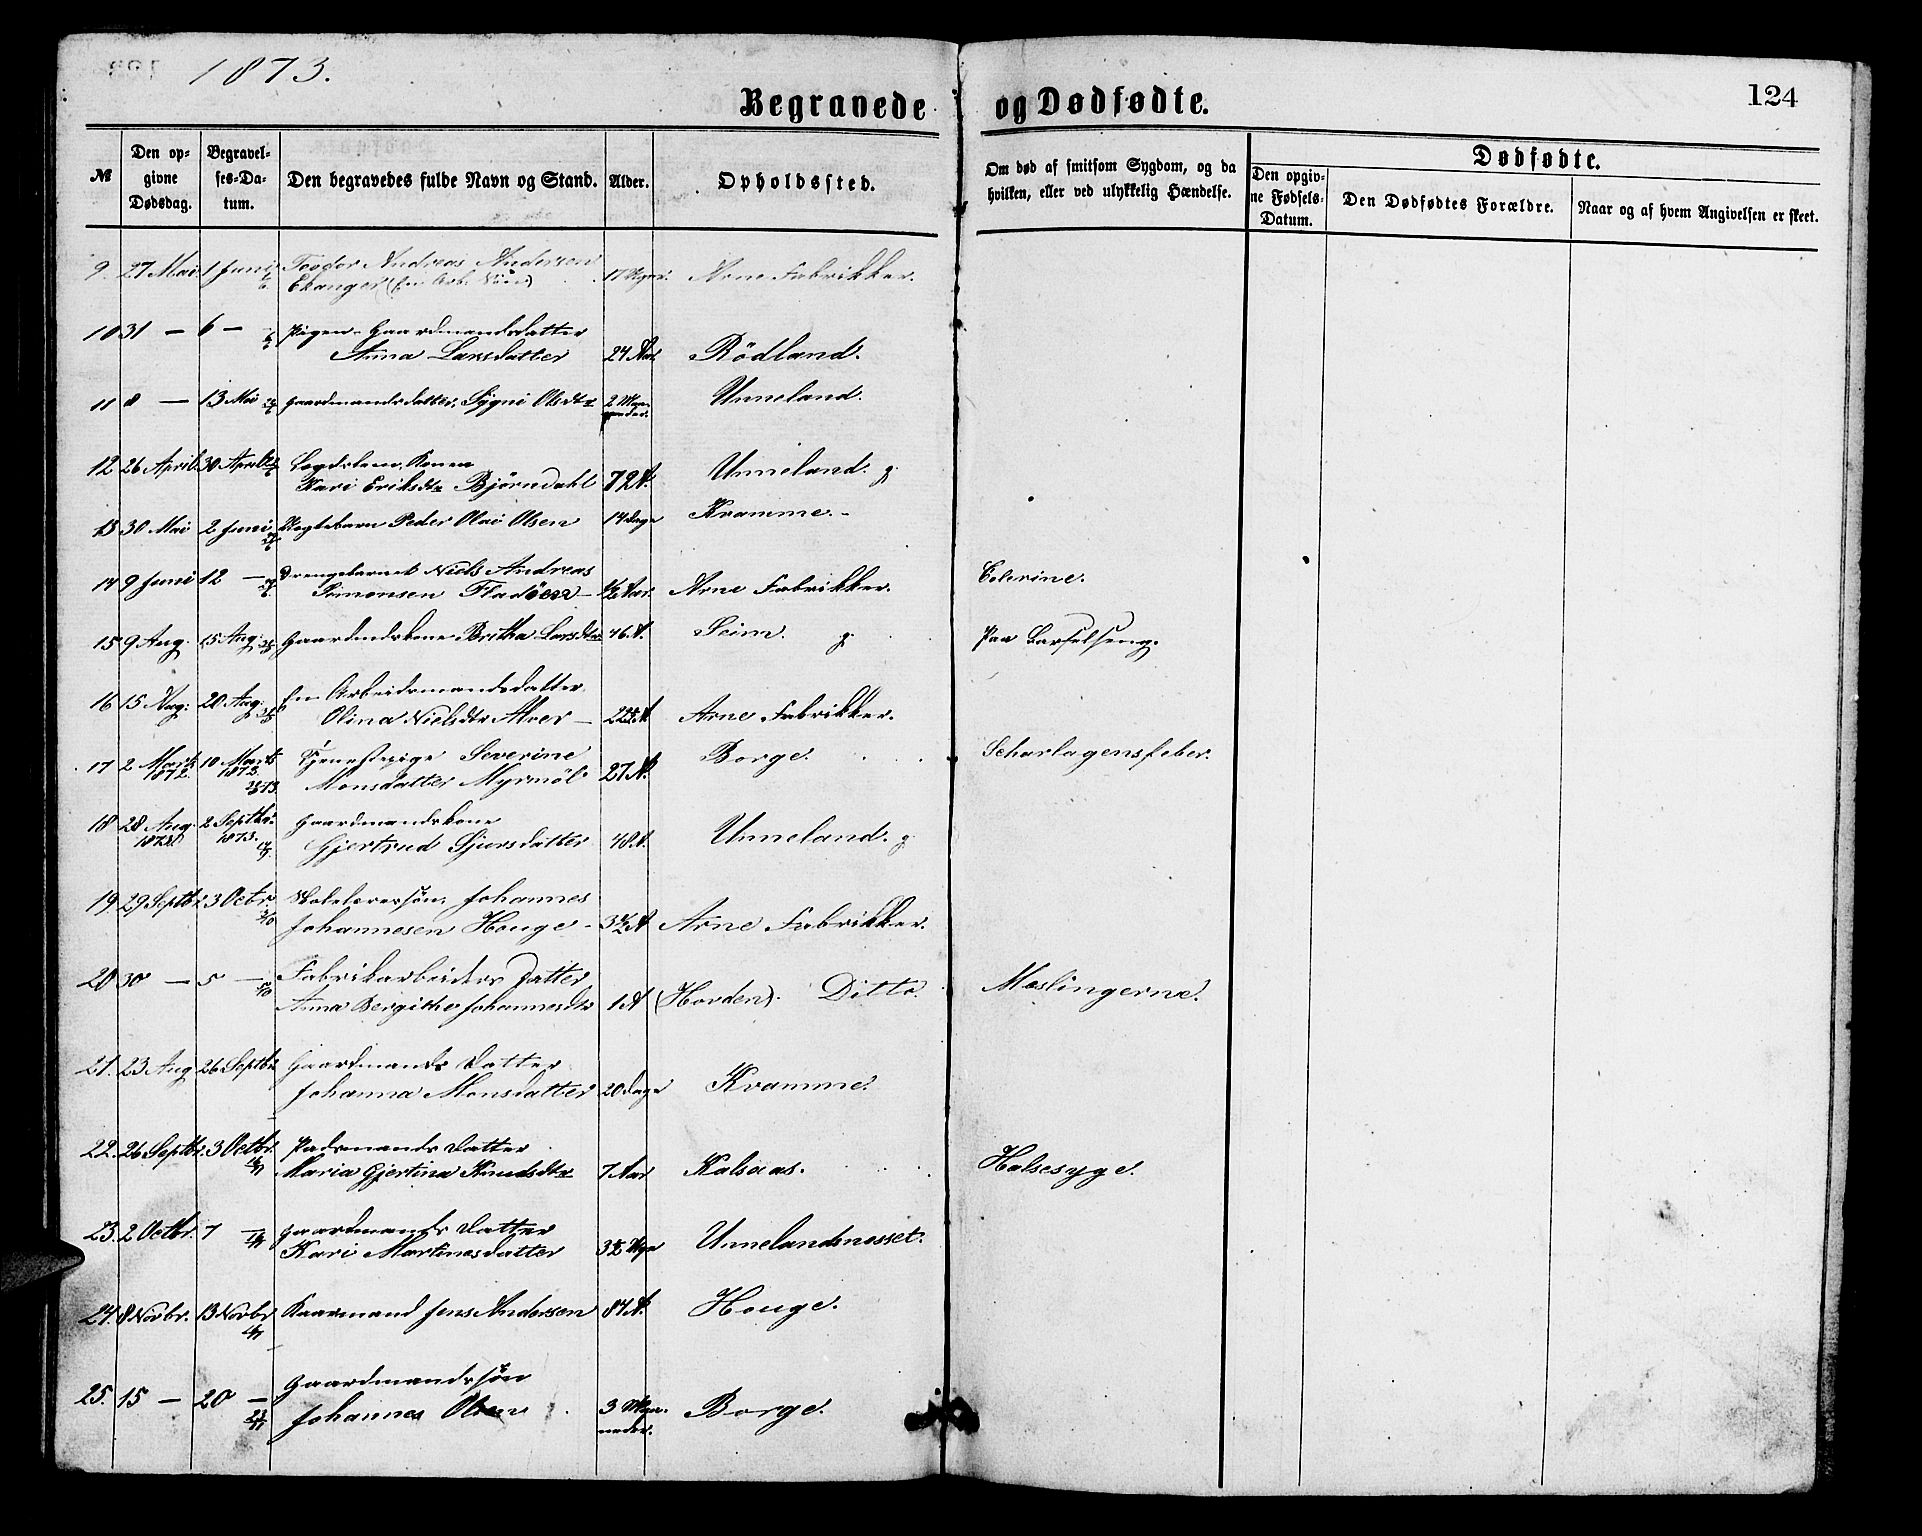 1873.
Begravede og Dødfødte.
124
№
Den op-
givne
Dødsdag.
Begravel-
ses-Da-
tum.
Den begravedes fulde Navn og Stand.
Alder.
Opholdssted.
Om død af smitsom Sygdom, og da
hvilken, eller ved ulykkelig Hændelse.
Dødfødte.
Den opgiv-
ne Fødsels-
Datum.
Den Dødfødtes Forældre.
Naar og af hvem Angivelsen er skeet.
9. 27 Mai 1 Juni Teodor Andreas Andersen
Ekanger (En Arb. Søn) 17 Uger Arne Fabrikker.
10 31 — 6 — Pigen, Gaardmandsdatter
Anna Larsdatter 24 Aar Rödland.
11 8 — 13 Mai Gaardmandsdatter, Sygni Olsdtr 2 Maaneder. Unneland.
12 26 April 30 April Lægdslem, Konen
Kari Eriksdtr Björndahl 79 A. Unneland. g.
13 30 Mai 2 Juni Uægtebarn Peder Olai Olsen 14 Dage Kramme.
14 9 Juni 12 — Drengebarnet Niels Andreas
Simonsen Fladöen — ½ Aar. Arne Fabrikker. Colerine.
15 9 Aug. 15 Aug. Gaardmdskone Britha Larsdtr 46 A. Seim. g. Paa Barselseng.
16 15 Aug. 20 Aug. En Arbeidsmandsdatter
Olina Nielsdtr Alver — A Arne Fabrikker.
17 2 Marts 1872. 10 Marts 1872. Tjenestepige Severine
Monsdatter Myrmöl 27 A. Borge. Scharlagensfeber.
18 28 Aug. 1873. 2 Septbr. 1873. Gaardmandskone
Gjertrud Sjursdatter 48 A. Unneland. g.
19 29 Septbr. 3 Octbr. Skolelærersön, Johannes
Johannesen Houge — 3½ A Arne Fabrikker.
20 30 — 5 — Fabrikarbeiders Datter
Anna Bergithe Johannesdtr 1 A (Horden). Ditto. Mæslingerne.
21. 23 Aug 26 Septbr Gaardmands Datter
Johanna Monsdatter 20 Dage Kramme.
22. 26 Septbr. 3 Octbr. Pladsmands Datter
Maria Gjertina Knudsdtr 7 Aar Kalsaas. Halsesyge.
23. 2 Octbr. 7 — Gaardmands Datter
Kari Martinesdatter 3½ Uger Unnelandsnesset.
24. 8 Novbr. 13 Novbr Kaarmand Jens Andersen 84 A. Houge.
25. 15 — 20 — Gaardmandssön
Johannes Olsen 3 Maaneder. Borge.